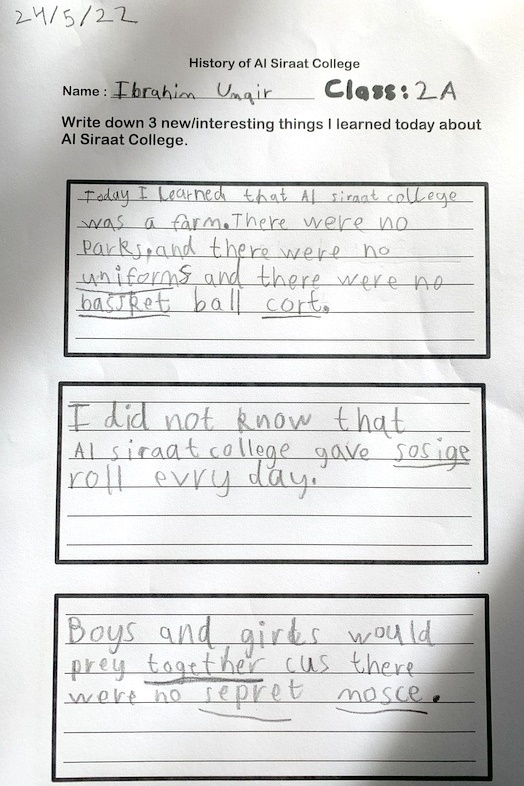 24/5/22
History of Al Siraat College
Name : Ibrahim Ungir Class: 2A
Write down 3 new/interesting things I learned today about
Al Siraat College.
Today I learned that Al siraat college
was a farm. There were no
Parks, and there were no
uniforms and there were no
bassket ball cort.
I did not know that
Al siraat college gave sosige
roll evry day.
Boys and girls would
prey together cus there
were no sepret mosce.